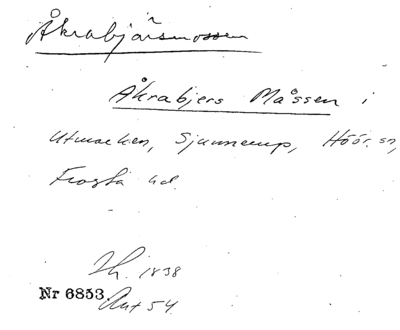 Åkrabjärsmossen
Åkrabjers Måssen i
Utmarken, Sjunnerup, Höör sn,
Frosta hd.
Sk. 1838
Nr 6853. Akt 54